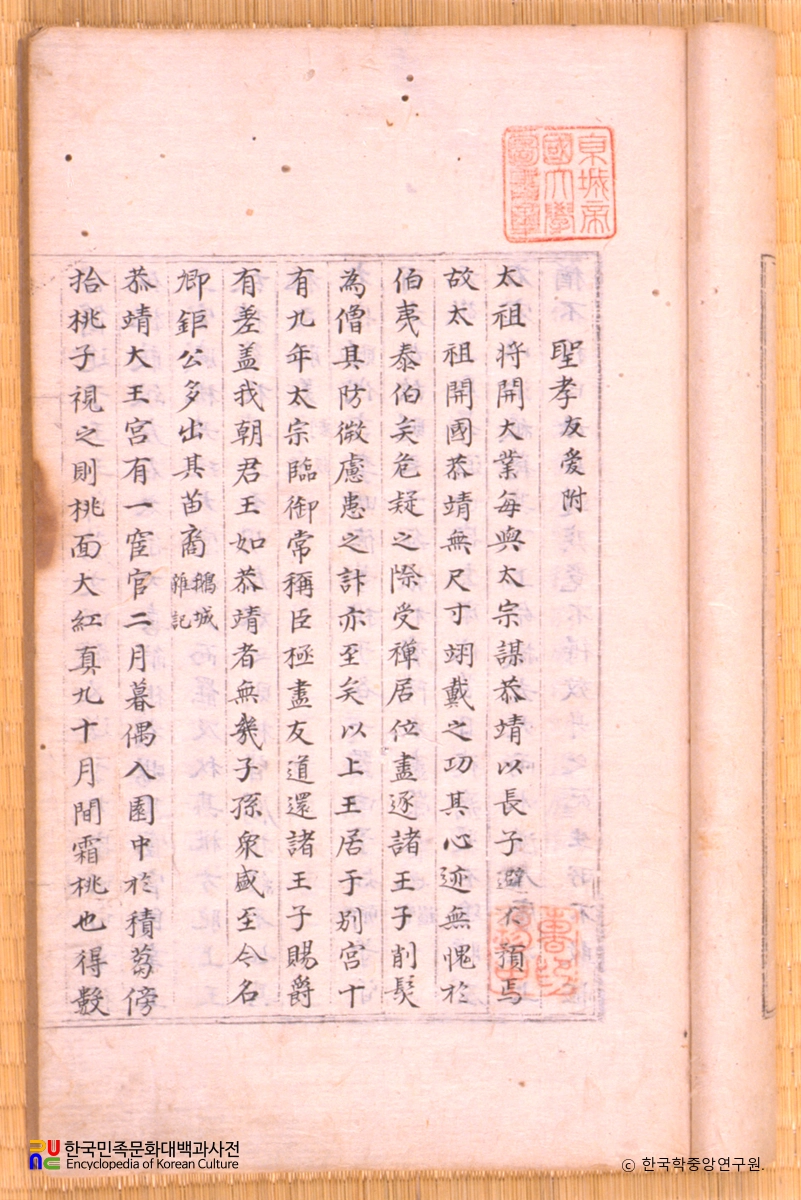 京城帝
國大學
圖書章
聖孝友愛附
太祖將開大業每與太宗謀恭靖以長子避不預焉
故太祖開國恭靖無尺寸翊戴之功其心迹無愧於
伯夷泰伯矣危疑之際受禪居位盡逐諸王子削髮
為僧其防微慮患之計亦至矣以上王居于別宮十
有九年太宗臨御常稱臣極盡友道還諸王子賜爵
有差盖我朝君王如恭靖者無幾子孫衆盛至今名
卿鉅公多出其苗裔鵝城雜記
恭靖大王宮有一宦官二月暮偶入園中於積葛傍
拾桃子視之則桃面大紅真九十月間霜桃也得數
한국민족문화대백과사전
Encyclopedia of Korean Culture
© 한국학중앙연구원.